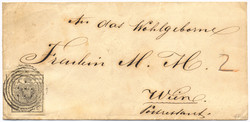 An das Wohlgeborne
Fräulein M. M. 2
Wien